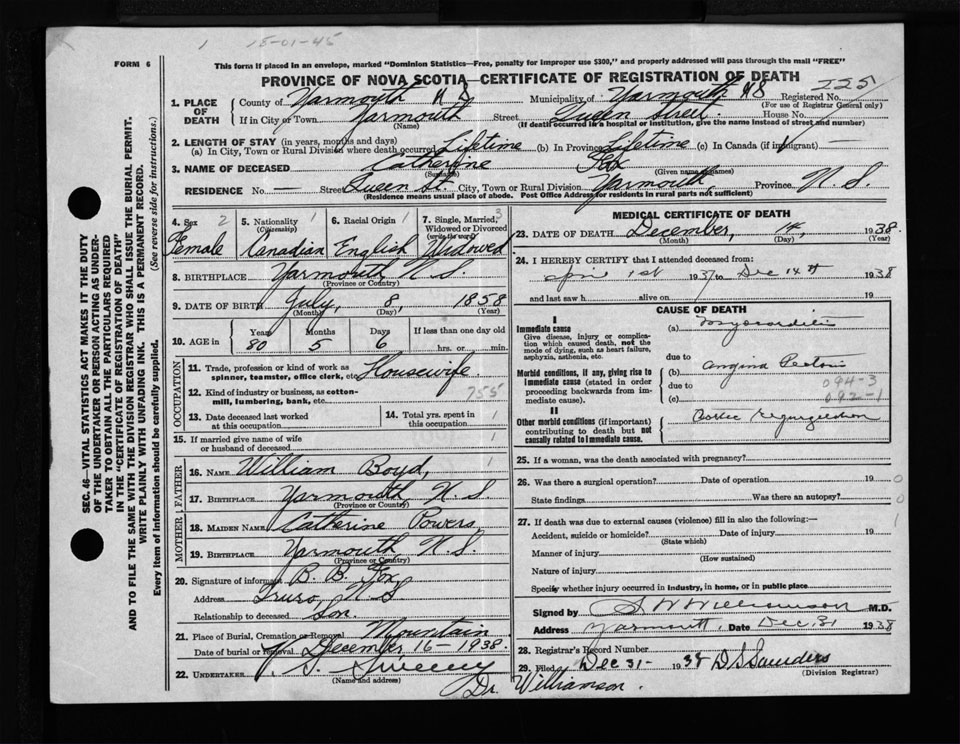 1 15-01-45
FORM 6
This form if placed in an envelope, marked "Dominion Statistics—Free, penalty for improper use $300," and properly addressed will pass through the mail "FREE"
PROVINCE OF NOVA SCOTIA—CERTIFICATE OF REGISTRATION OF DEATH
1. PLACE OF DEATH
County of Yarmouth N S Municipality of Yarmouth N S Registered No.
(For use of Registrar General only)
If in City or Town Yarmouth Street Queen Street. House No.
(Name) (If death occurred in a hospital or institution, give the name instead of street and number)
2. LENGTH OF STAY (in years, months and days)
(a) In City, Town or Rural Division where death occurred Lifetime (b) In Province Lifetime (c) In Canada (if immigrant) —
3. NAME OF DECEASED Catherine Fox
(Surname) (Given name or names)
RESIDENCE No. — Street Queen St. City, Town or Rural Division Yarmouth, Province N. S.
(Residence means usual place of abode. Post Office Address for residents in rural parts not sufficient)
4. Sex 2 Female
5. Nationality 1 (Citizenship) Canadian
6. Racial Origin 1 English
7. Single, Married, 3 Widowed or Divorced (write the word) Widowed
8. BIRTHPLACE Yarmouth N. S.
(Province or Country)
9. DATE OF BIRTH July, 8, 1858
(Month) (Day) (Year)
10. AGE in Years Months Days If less than one day old
80 5 6 hrs. or min.
OCCUPATION
11. Trade, profession or kind of work as spinner, teamster, office clerk, etc. Housewife
12. Kind of industry or business, as cotton-mill, lumbering, bank, etc. 755
13. Date deceased last worked at this occupation
14. Total yrs. spent in this occupation 1
15. If married give name of wife or husband of deceased 1
FATHER
16. NAME William Boyd, 1
17. BIRTHPLACE Yarmouth, N. S
(Province or Country)
MOTHER
18. MAIDEN NAME Catherine Powers
19. BIRTHPLACE Yarmouth, N. S.
(Province or Country)
20. Signature of informant B. B. Fox,
Address Truro, N S
Relationship to deceased Son.
21. Place of Burial, Cremation or Removal Mountain
Date of burial or removal December 16 - 1938.
22. UNDERTAKER Sweeney
(Name and address)
Dr. Williamson.
MEDICAL CERTIFICATE OF DEATH
23. DATE OF DEATH December, 14, 1938
(Month) (Day) (Year)
24. I HEREBY CERTIFY that I attended deceased from:
1st 1937 to Dec 14th 1938
and last saw h alive on 19
CAUSE OF DEATH
I
Immediate cause
Give disease, injury or complication which caused death, not the mode of dying, such as heart failure, asphyxia, asthenia, etc.
(a) Myocarditis
due to
Morbid conditions, if any, giving rise to immediate cause (stated in order proceeding backwards from immediate cause).
(b) Angina Pectoris
due to 094-3
(c) 092-1
II
Other morbid conditions (if important) contributing to death but not causally related to immediate cause.
25. If a woman, was the death associated with pregnancy?
26. Was there a surgical operation? Date of operation 19 0
State findings Was there an autopsy? 0
27. If death was due to external causes (violence) fill in also the following:— 1
Accident, suicide or homicide? Date of injury 19
(State which)
Manner of injury
(How sustained)
Nature of injury
Specify whether injury occurred in industry, in home, or in public place
Signed by Williamson M.D.
Address Yarmouth, Date Dec 31 1938
28. Registrar's Record Number
29. Filed Dec 31- 1938 D S Saunders
(Division Registrar)
SEC. 46—VITAL STATISTICS ACT MAKES IT THE DUTY
OF THE UNDERTAKER OR PERSON ACTING AS UNDER-
TAKER TO OBTAIN ALL THE PARTICULARS REQUIRED
IN THE "CERTIFICATE OF REGISTRATION OF DEATH"
AND TO FILE THE SAME WITH THE DIVISION REGISTRAR WHO SHALL ISSUE THE BURIAL PERMIT.
WRITE PLAINLY WITH UNFADING INK. THIS IS A PERMANENT RECORD.
Every item of information should be carefully supplied. (See reverse side for instructions.)